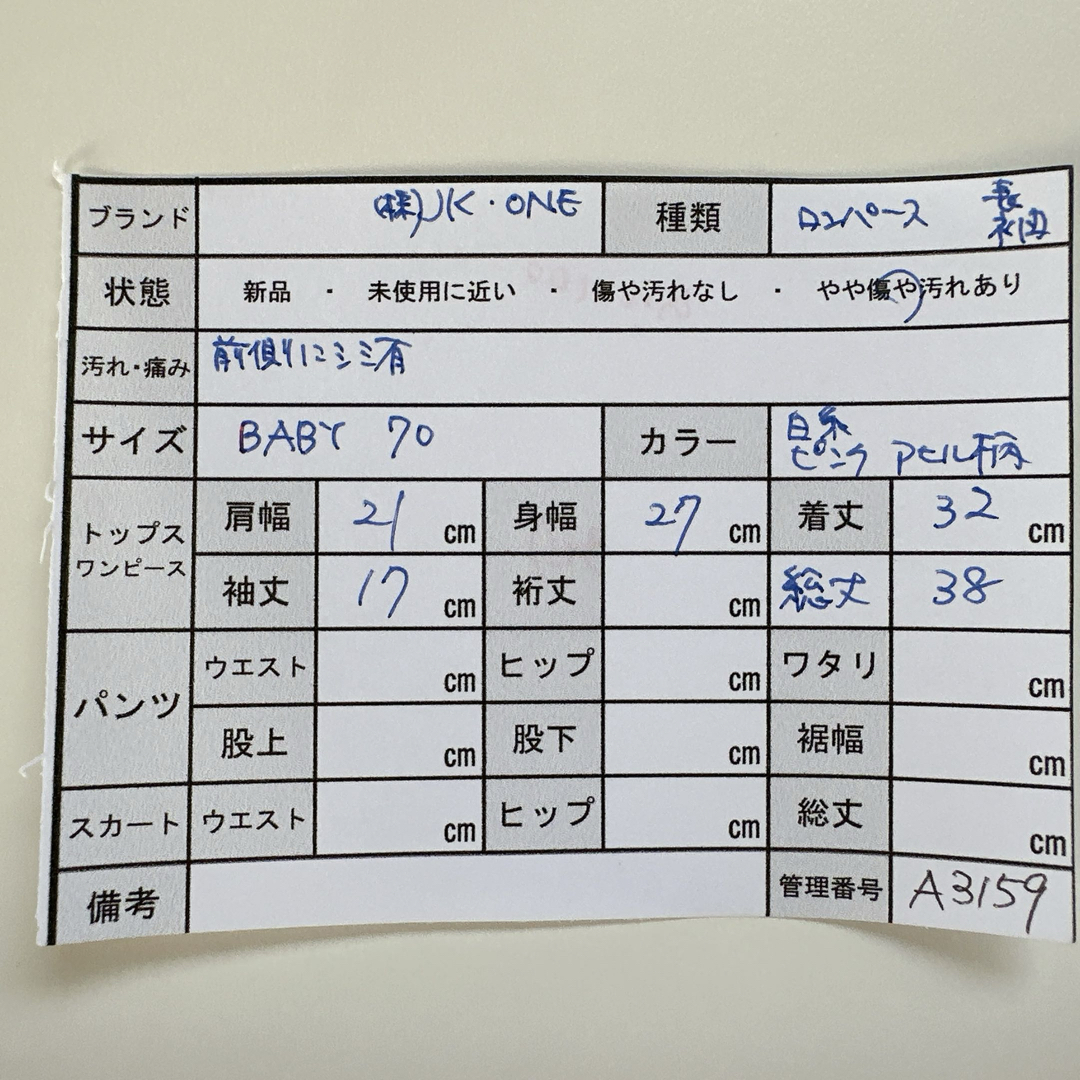 ブランド (株)JK・ONE 種類 ロンパース 長袖
状態 新品 ・ 未使用に近い ・ 傷や汚れなし ・ やや傷や汚れあり
汚れ・痛み 前側にシミ有
サイズ BABY 70 カラー 白系 ピンク アヒル柄
トップス ワンピース 肩幅 21 cm 身幅 27 cm 着丈 32 cm
袖丈 17 cm 裄丈 cm 総丈 38
パンツ ウエスト cm ヒップ cm ワタリ cm
股上 cm 股下 cm 裾幅 cm
スカート ウエスト cm ヒップ cm 総丈 cm
備考 管理番号 A3159